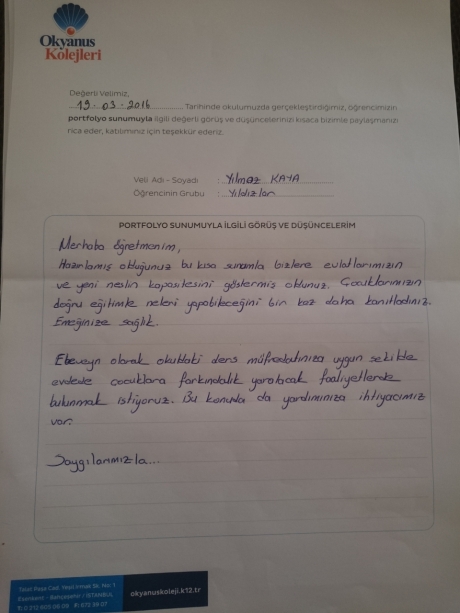 Okyanus
Kolejleri
Değerli Velimiz,
19.03.2016 Tarihinde okulumuzda gerçekleştirdiğimiz, öğrencimizin
portfolyo sunumuyla ilgili değerli görüş ve düşüncelerinizi kısaca bizimle paylaşmanızı
rica eder, katılımınız için teşekkür ederiz.
Veli Adı - Soyadı : Yılmaz KAYA
Öğrencinin Grubu : Yıldızlar
PORTFOLYO SUNUMUYLA İLGİLİ GÖRÜŞ VE DÜŞÜNCELERİM
Merhaba öğretmenim,
Hazırlamış olduğunuz bu kısa sunumla bizlere evlatlarımızın
ve yeni neslin kapasitesini göstermiş oldunuz. Çocuklarımızın
doğru eğitimle neleri yapabileceğini bir kez daha kanıtladınız.
Emeğinize sağlık.
Ebeveyn olarak okuldaki ders müfredatınıza uygun şekilde
evdede çocuklara farkındalık yaratacak faaliyetlerde
bulunmak istiyoruz. Bu konuda da yardımınıza ihtiyacımız
var.
Saygılarımızla...
okyanuskoleji.k12.tr